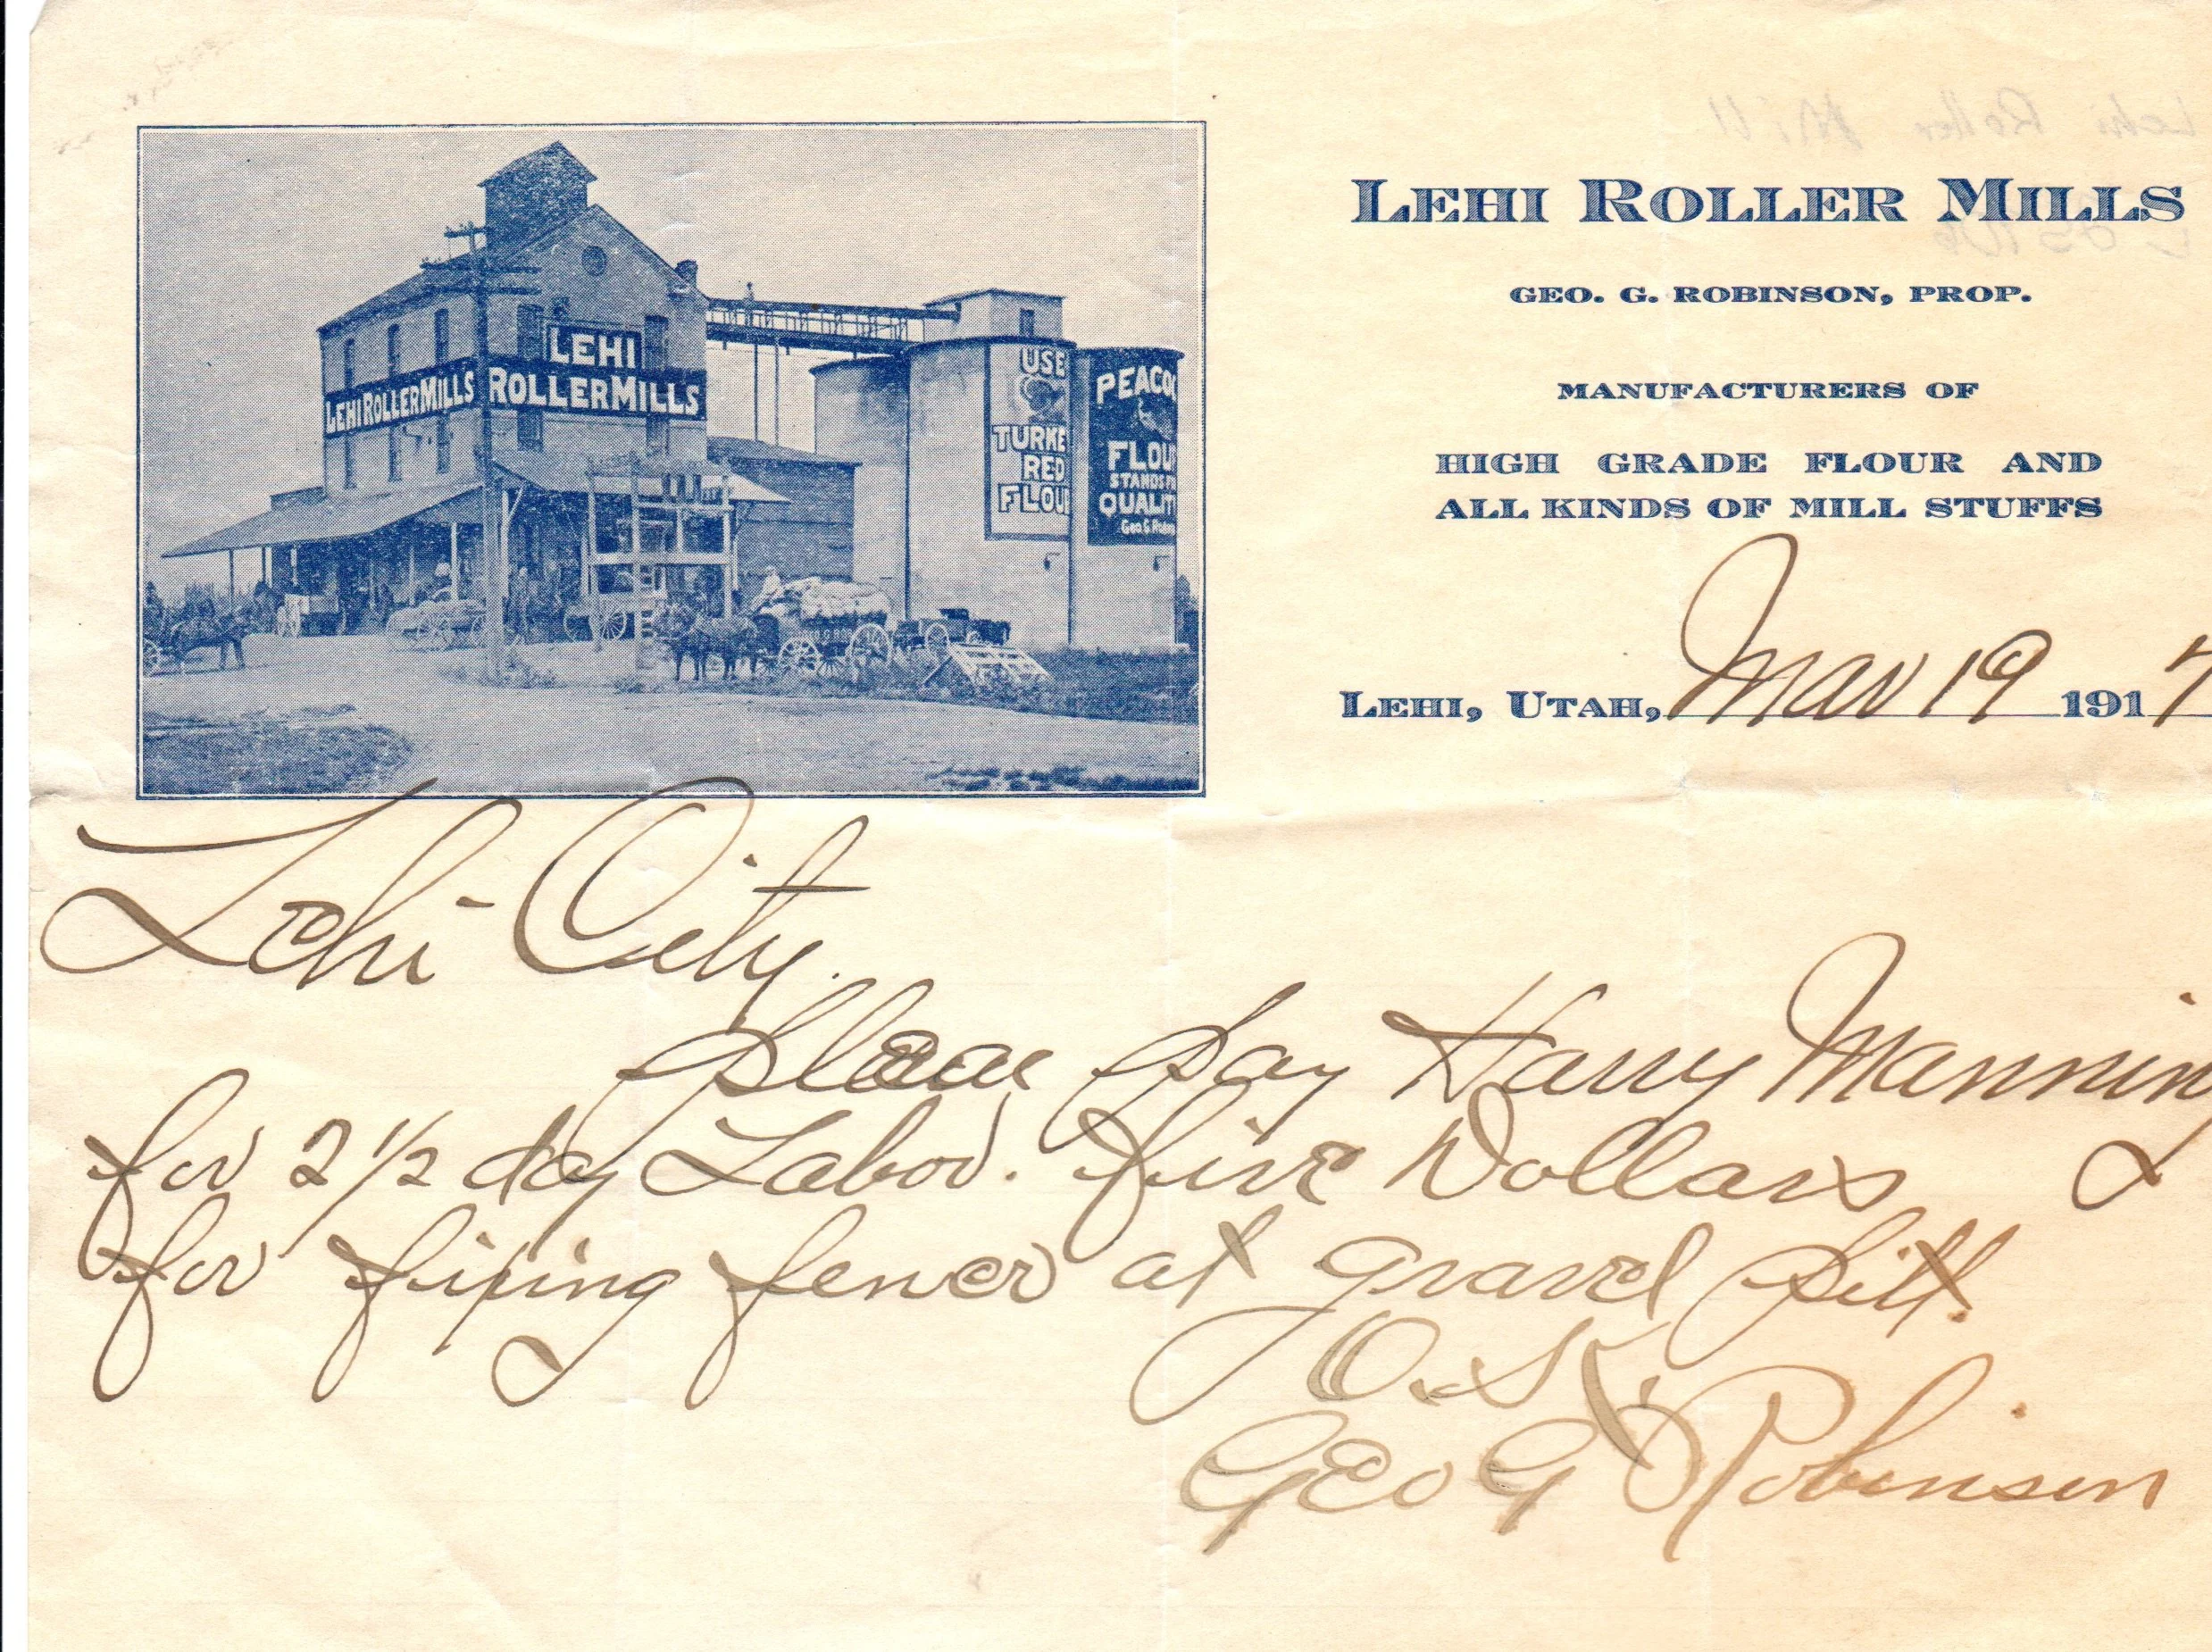 LEHI ROLLER MILLS
GEO. G. ROBINSON, PROP.
MANUFACTURERS OF
HIGH GRADE FLOUR AND
ALL KINDS OF MILL STUFFS
LEHI, UTAH, Mar 19 1917
LEHI
LEHI ROLLER MILLS
ROLLER MILLS
USE
TURKE
RED
FLOU
PEACOC
FLOU
STANDS
QUALIT
Geo. G. Robin
Lehi City.
Please Pay Harry Manning
for 2 1/2 day Labor. five Dollars &
for fixing fence at gravel pitt.
O.K.
Geo G Robinson
Lehi Roller Mill